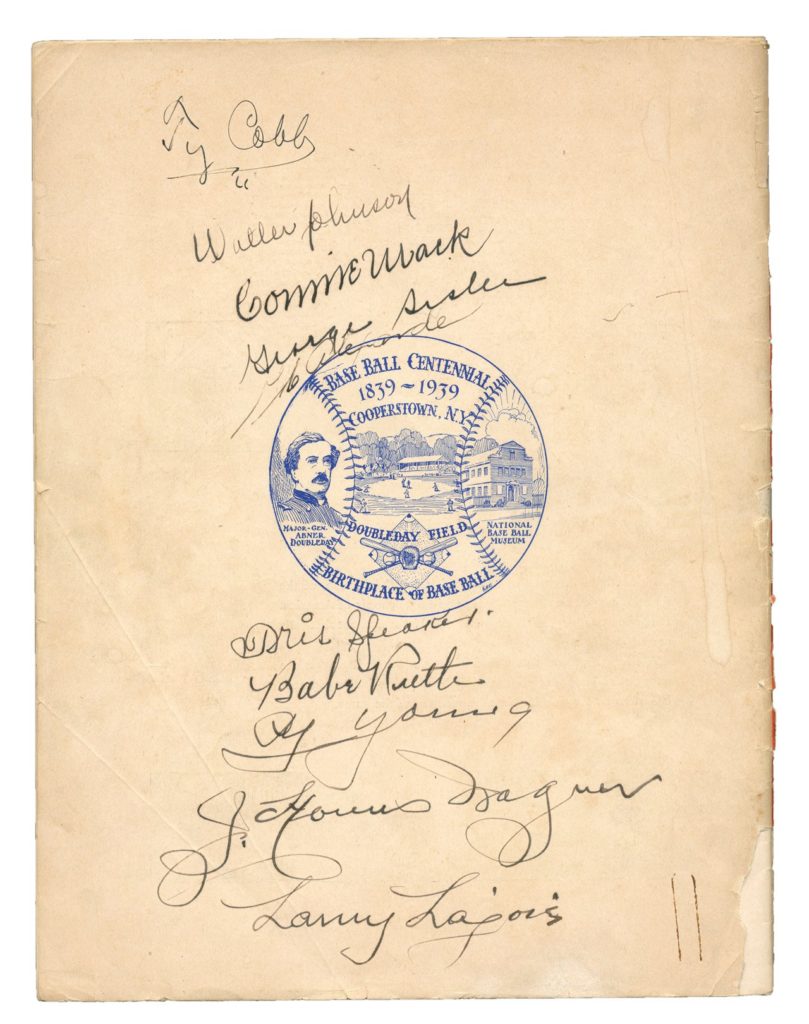 Ty Cobb
Walter Johnson
Connie Mack
George Sisler
BASE BALL CENTENNIAL
1839 ~ 1939
COOPERSTOWN, N.Y.
MAJOR-GEN.
ABNER
DOUBLEDAY
DOUBLEDAY FIELD
NATIONAL
BASE BALL
MUSEUM
BIRTHPLACE OF BASE BALL
Tris Speaker.
Babe Ruth
Cy Young
J. Honus Wagner
Larry Lajoie